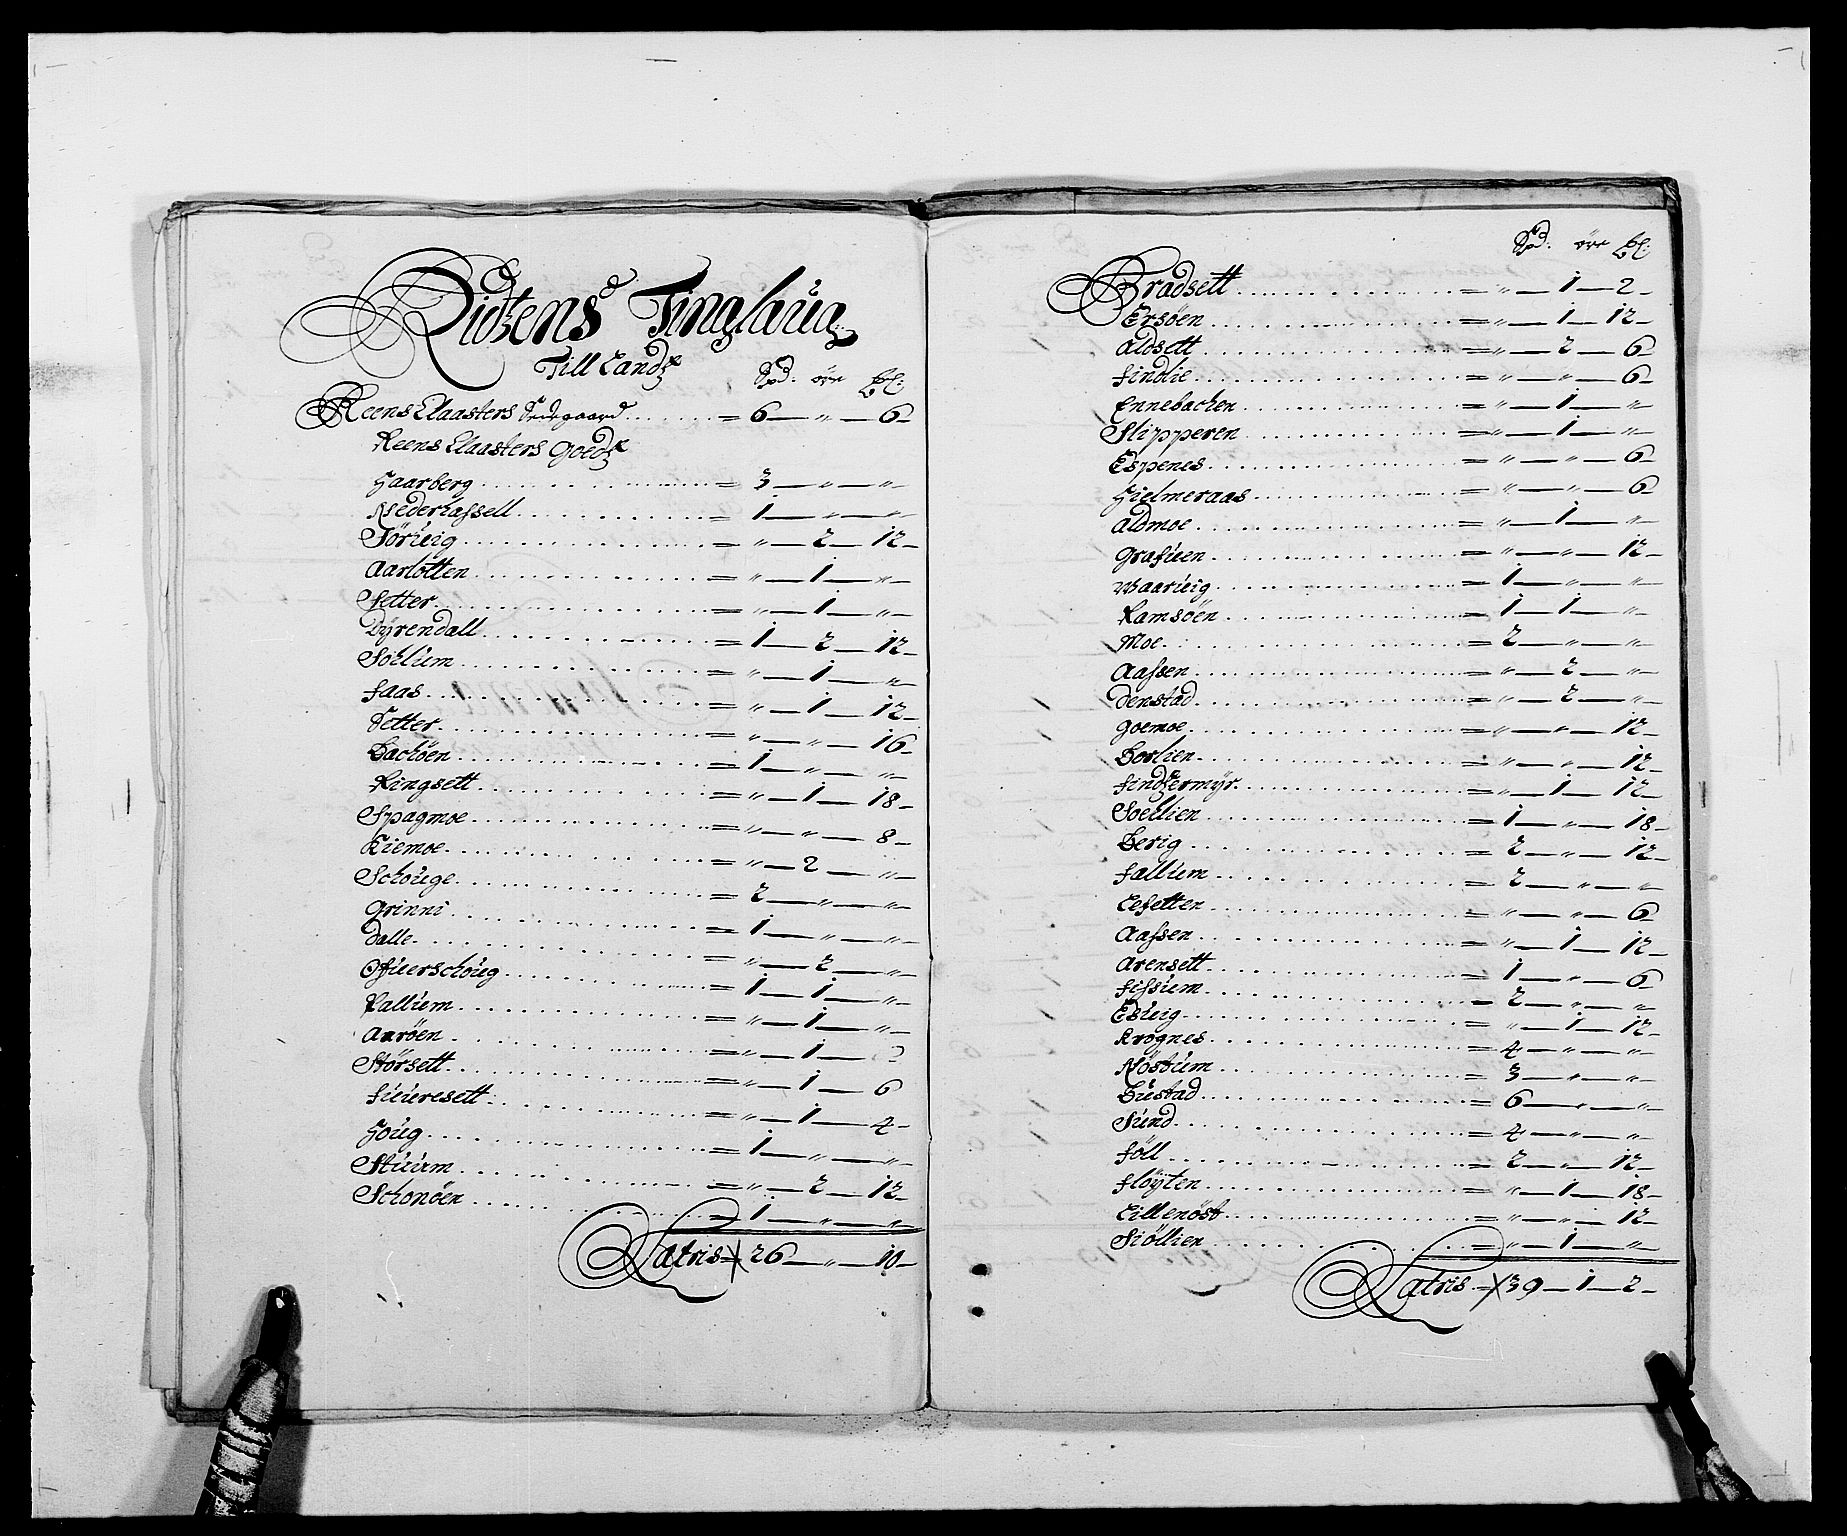 Ridtens Tinglaug
Till Landz
Spd: öre ſſ:
Reens Claasters Sædegaard = 6 — " — 6
Reens Claasters Goedz
Haarberg = 3 — " — "
Nederhassell = 1 — " — "
Sörüig = " — 2 — 12
Aarlotten = " — 1 — "
Setter = " — 1 — "
Dÿrendall = 1 — 2 — 12
Solium = " — 1 — "
Faas = " — 1 — 12
Setter = " — " — 16
Bachöen = 1 — " — "
Ringsett = " — 1 — 18
Spagmoe = " — " — 8
Kiemoe = " — 2 — "
Schouge = 2 — " — "
Grinni = 1 — " — "
Dalle = " — 2 — "
Ofuerschoug = 1 — 1 — "
Rallium = " — 1 — "
Aaröen = " — 1 —
Störsett = " — 1 — 6
Fuuresett = " — 1 — 4
Houg = 1 — " — "
Stuum = " — 2 — 12
Schonöen = 1 — " — "
Latris 26 — " — 10
Spd: öre ſſ:
Bradsett = " — 1 — 2
Ersöen = " — 1 — 12
Aldsett = " — 2 — 6
Findlie = " — " — 6
Ennebachen = " — 1 — "
Slipperen = " — 1 — "
Espenes = " — " — 6
Hielmeraas = " — " — 6
Aldmoe = " — 1 — "
Grafuen = " — " — 12
Waaruig = 1 — " — "
Ramsöen = 1 — 1 — "
Moe = 2 — " — "
Aassen = " — 2 — "
Denstad = " — 2 — "
Goemoe = " — " — 12
Borlien = " — " — 12
Findzermÿr = " — 1 — 12
Soelien = 1 — " — 18
Berig = 2 — " — 12
Fallium = 2 — " — "
Lefetten = " — " — 6
Aassen = " — 1 — 12
Arensett = 1 — " — 6
Fissum = 2 — " — "
Esuig = " — 1 — 12
Krognes = 4 — " — "
Nöstum = 3 — " — "
Bustad = 6 — " — "
Sund = 4 — " — "
Föll = 2 — " — 12
Flöÿten = " — 1 — 18
Lillenöst = " — " — 12
Siöllien = " — 1 — "
Latris 39 — 1 — 2